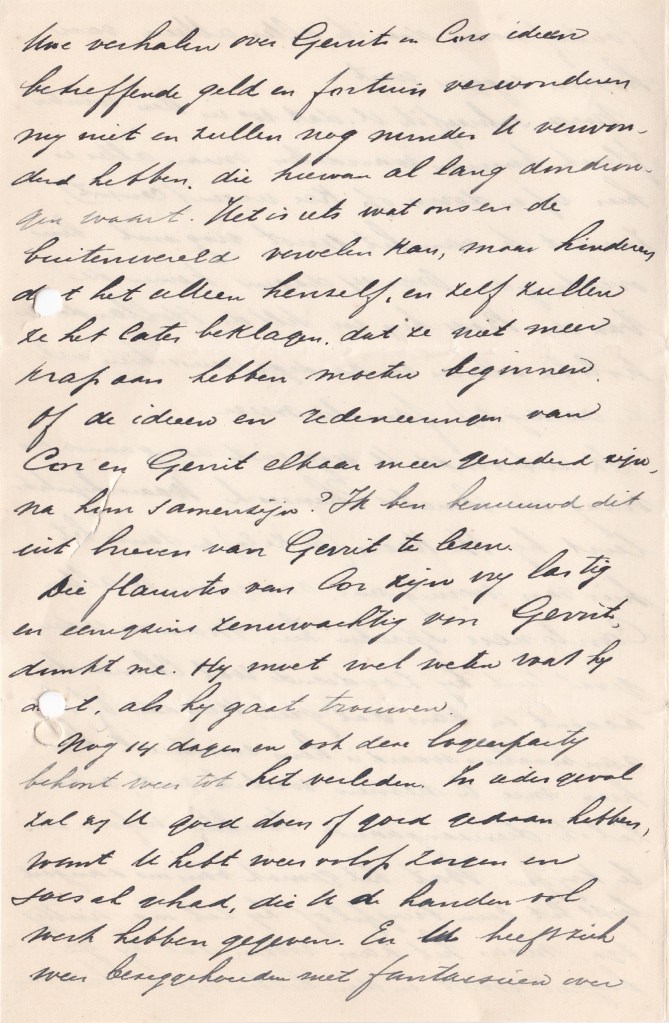 Uwe verhalen over Gerrits en Cors ideeen
betreffende geld en fortuin verwonderen
my niet en zullen nog minder U verwon-
derd hebben, die hiervan al lang doordron-
gen waart. Het is iets wat ons en de
buitenwereld vervelen kan, maar hinderen
doet het alleen henzelf, en zelf zullen
ze het later beklagen, dat ze niet meer
krap aan hebben moeten beginnen.
Of de ideeen en redeneeringen van
Cor en Gerrit elkaar meer genaderd zijn,
na hun samenzijn? Ik ben benieuwd dit
uit brieven van Gerrit te lezen.
Die flauwtes van Cor zijn vry lastig
en eenigszins zenuwachtig voor Gerrit,
dunkt me. Hy moet wel weten wat hy
doet, als hy gaat trouwen.
Nog 14 dagen en ook deze logeerparty
behoort weer tot het verleden. In ieder geval
zal zy U goed doen of goed gedaan hebben,
want U hebt weer volop zorgen en
soesah gehad, die U de handen vol
werk hebben gegeven. En U heeft zich
weer beziggehouden met fantasieen over